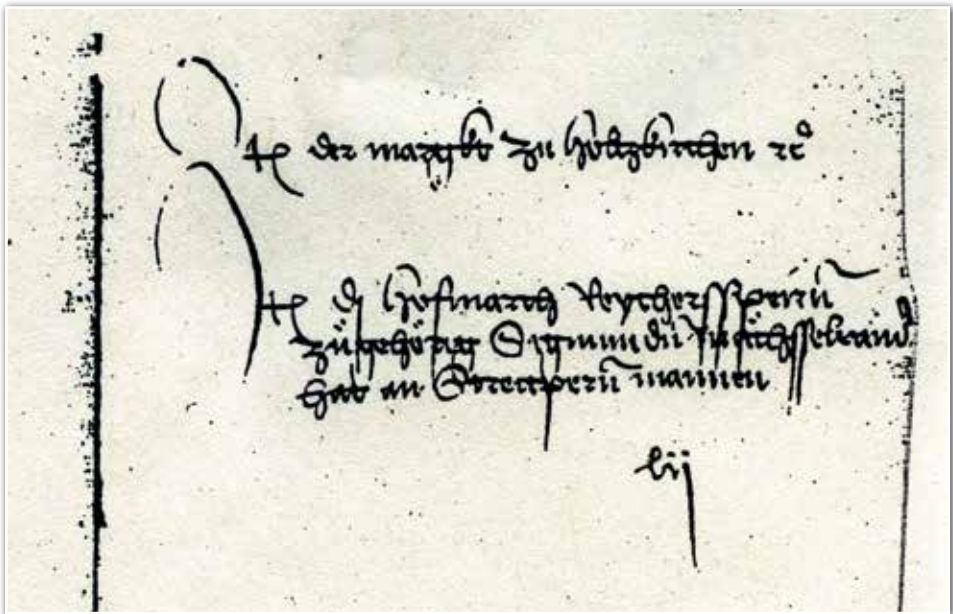 It der margkt zu holtzkirchen rc
It dj hofmarch Reychersspeurn
zugehorig Sigmundn
hab an Streitpern mannen
lij